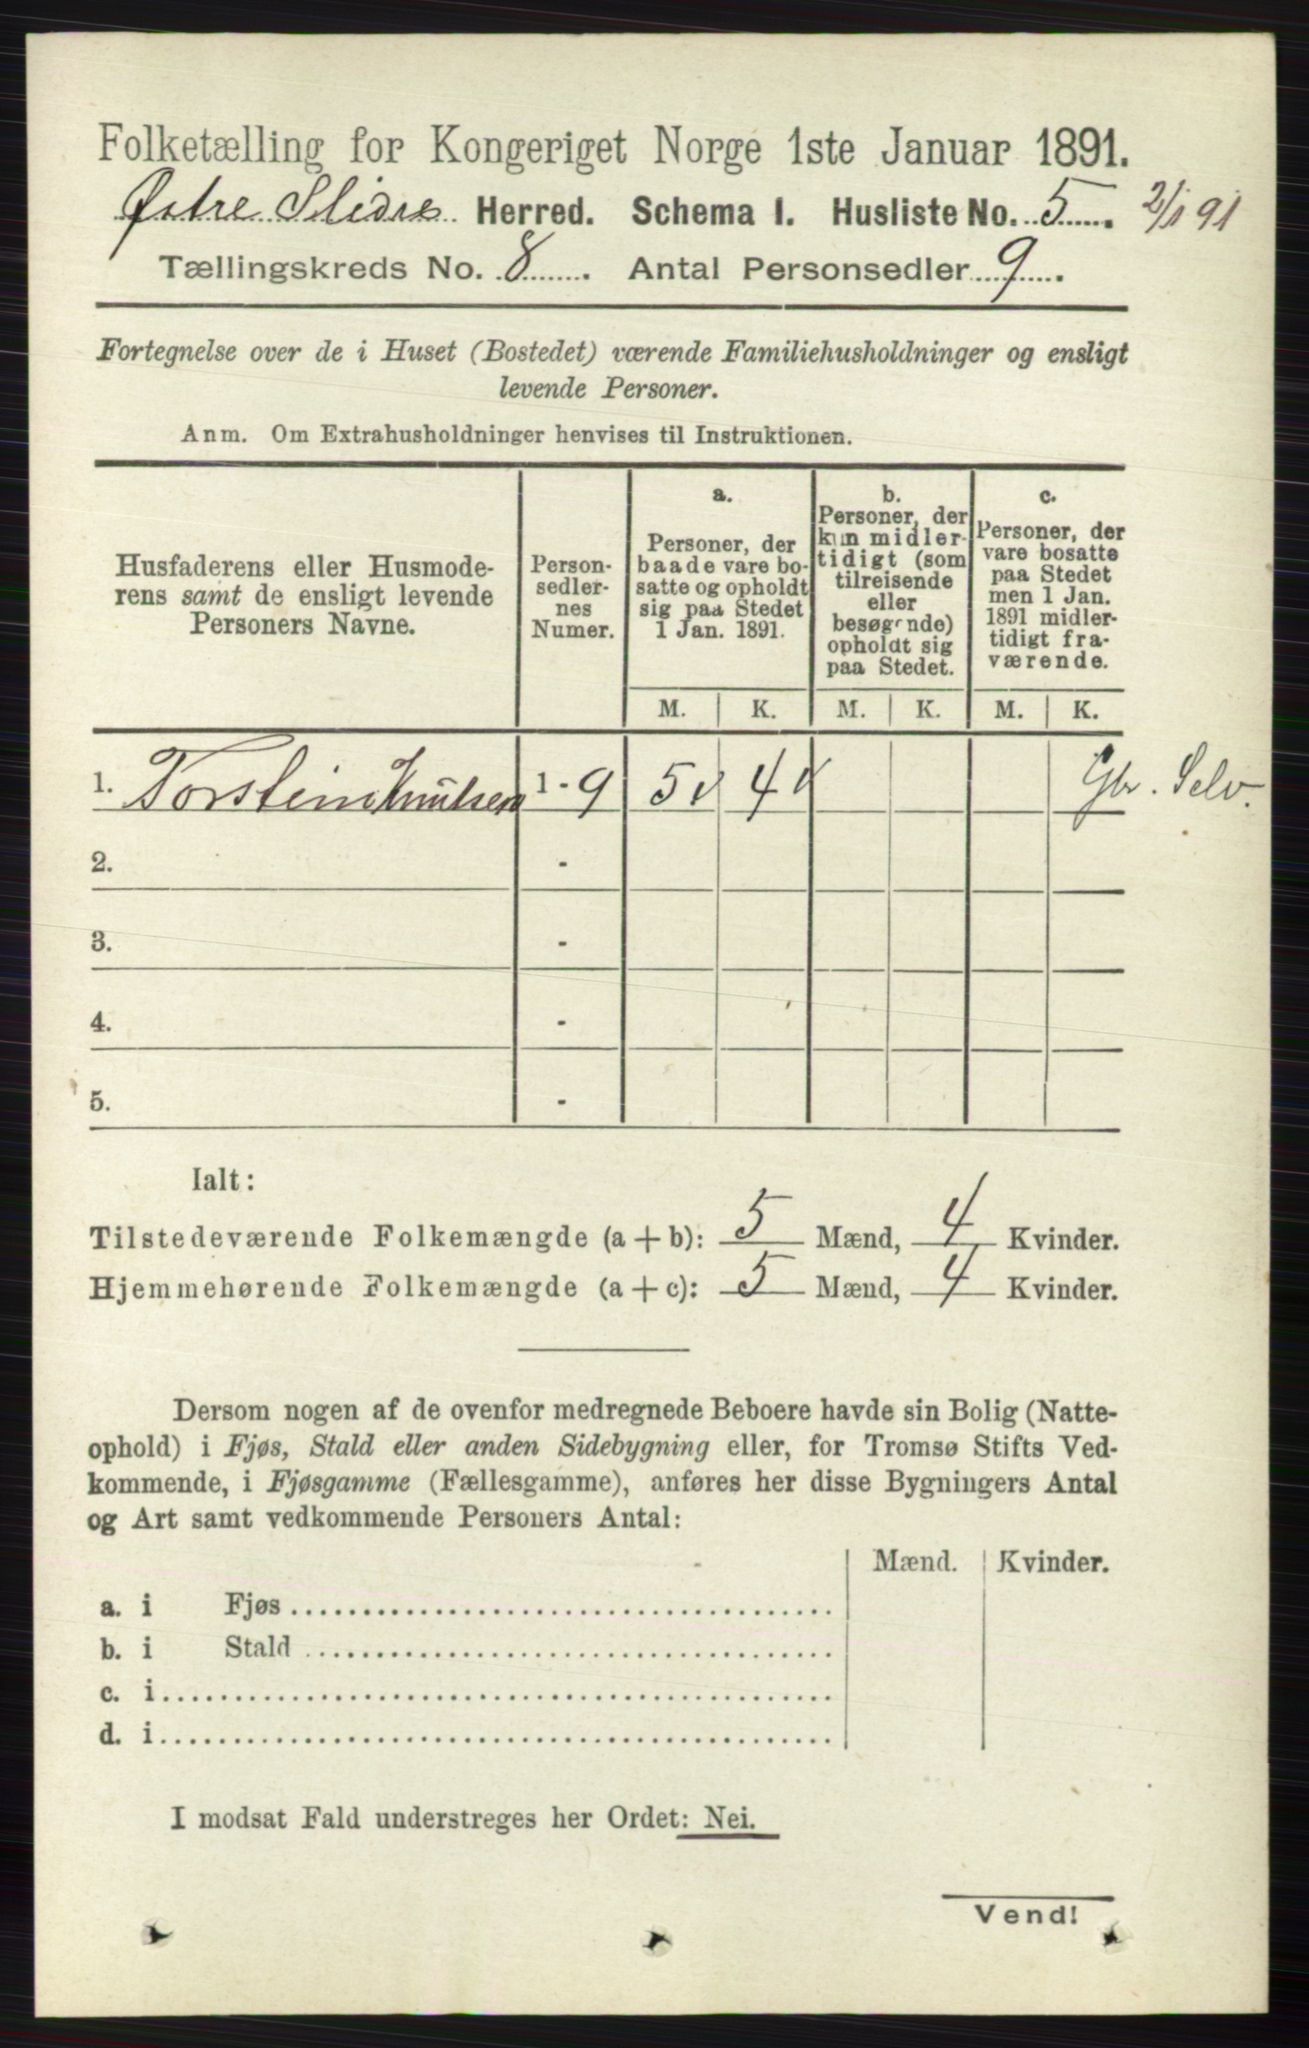 Folketælling for Kongeriget Norge 1ste Januar 1891.
Østre Slidre Herred. Schema 1. Husliste No. 5 2/1 91
Tællingskreds No. 8 . Antal Personsedler 9 .
Fortegnelse over de i Huset (Bostedet) værende Familiehusholdninger og ensligt
levende Personer.
Anm. Om Extrahusholdninger henvises til Instruktionen.
Husfaderens eller Husmode-
rens samt de ensligt levende
Personers Navne.
Person-
sedler-
nes
Numer.
a.
Personer, der
baade vare bo-
satte og opholdt
sig paa Stedet
1 Jan. 1891.
b.
Personer, der
kun midler-
tidigt (som
tilreisende
eller
besøgende)
opholdt sig
paa Stedet.
c.
Personer, der
vare bosatte
paa Stedet
men 1 Jan.
1891 midler-
tidigt fra-
værende.
M. K. M. K. M. K.
1. Torstein Knutsen 1 - 9 5 4 Gbr. Selv.
2. -
3. -
4. -
5. -
Ialt:
Tilstedeværende Folkemængde (a + b): 5 Mænd, 4 Kvinder.
Hjemmehørende Folkemængde (a + c): 5 Mænd, 4 Kvinder.
Dersom nogen af de ovenfor medregnede Beboere havde sin Bolig (Natte-
ophold) i Fjøs, Stald eller anden Sidebygning eller, for Tromsø Stifts Ved-
kommende, i Fjøsgamme (Fællesgamme), anføres her disse Bygningers Antal
og Art samt vedkommende Personers Antal:
Mænd. Kvinder.
a. i Fjøs
b. i Stald
c. i
d. i
I modsat Fald understreges her Ordet: Nei.
Vend!